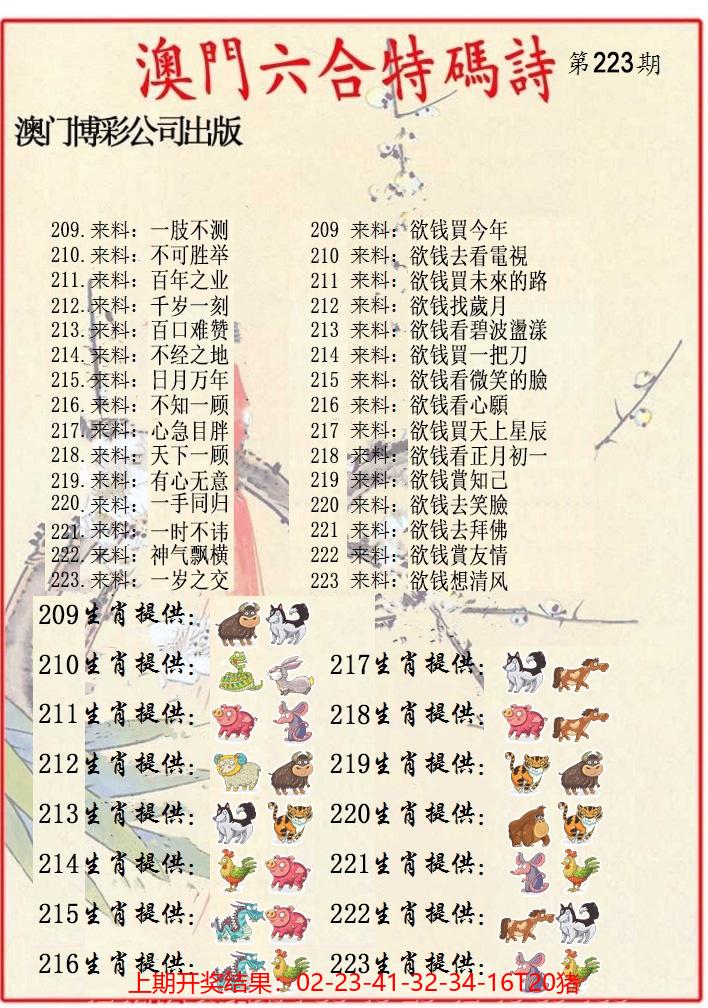 澳門六合特碼詩 第223期
澳门博彩公司出版
209.来料：一肢不测 209 来料：欲钱買今年
210.来料：不可胜举 210 来料：欲钱去看電視
211.来料：百年之业 211 来料：欲钱買未來的路
212.来料：千岁一刻 212 来料：欲钱找歲月
213.来料：百口难赞 213 来料：欲钱看碧波盪漾
214.来料：不经之地 214 来料：欲钱買一把刀
215.来料：日月万年 215 来料：欲钱看微笑的臉
216.来料：不知一顾 216 来料：欲钱看心願
217.来料：心急目胖 217 来料：欲钱買天上星辰
218.来料：天下一顾 218 来料：欲钱看正月初一
219.来料：有心无意 219 来料：欲钱賞知己
220.来料：一手同归 220 来料：欲钱去笑臉
221.来料：一时不讳 221 来料：欲钱去拜佛
222.来料：神气飘横 222 来料：欲钱賞友情
223.来料：一岁之交 223 来料：欲钱想清风
209生肖提供：
210生肖提供： 217生肖提供：
211生肖提供： 218生肖提供：
212生肖提供： 219生肖提供：
213生肖提供： 220生肖提供：
214生肖提供： 221生肖提供：
215生肖提供： 222生肖提供：
216生肖提供： 223生肖提供：
上期开奖结果：02-23-41-32-34-16T20猪